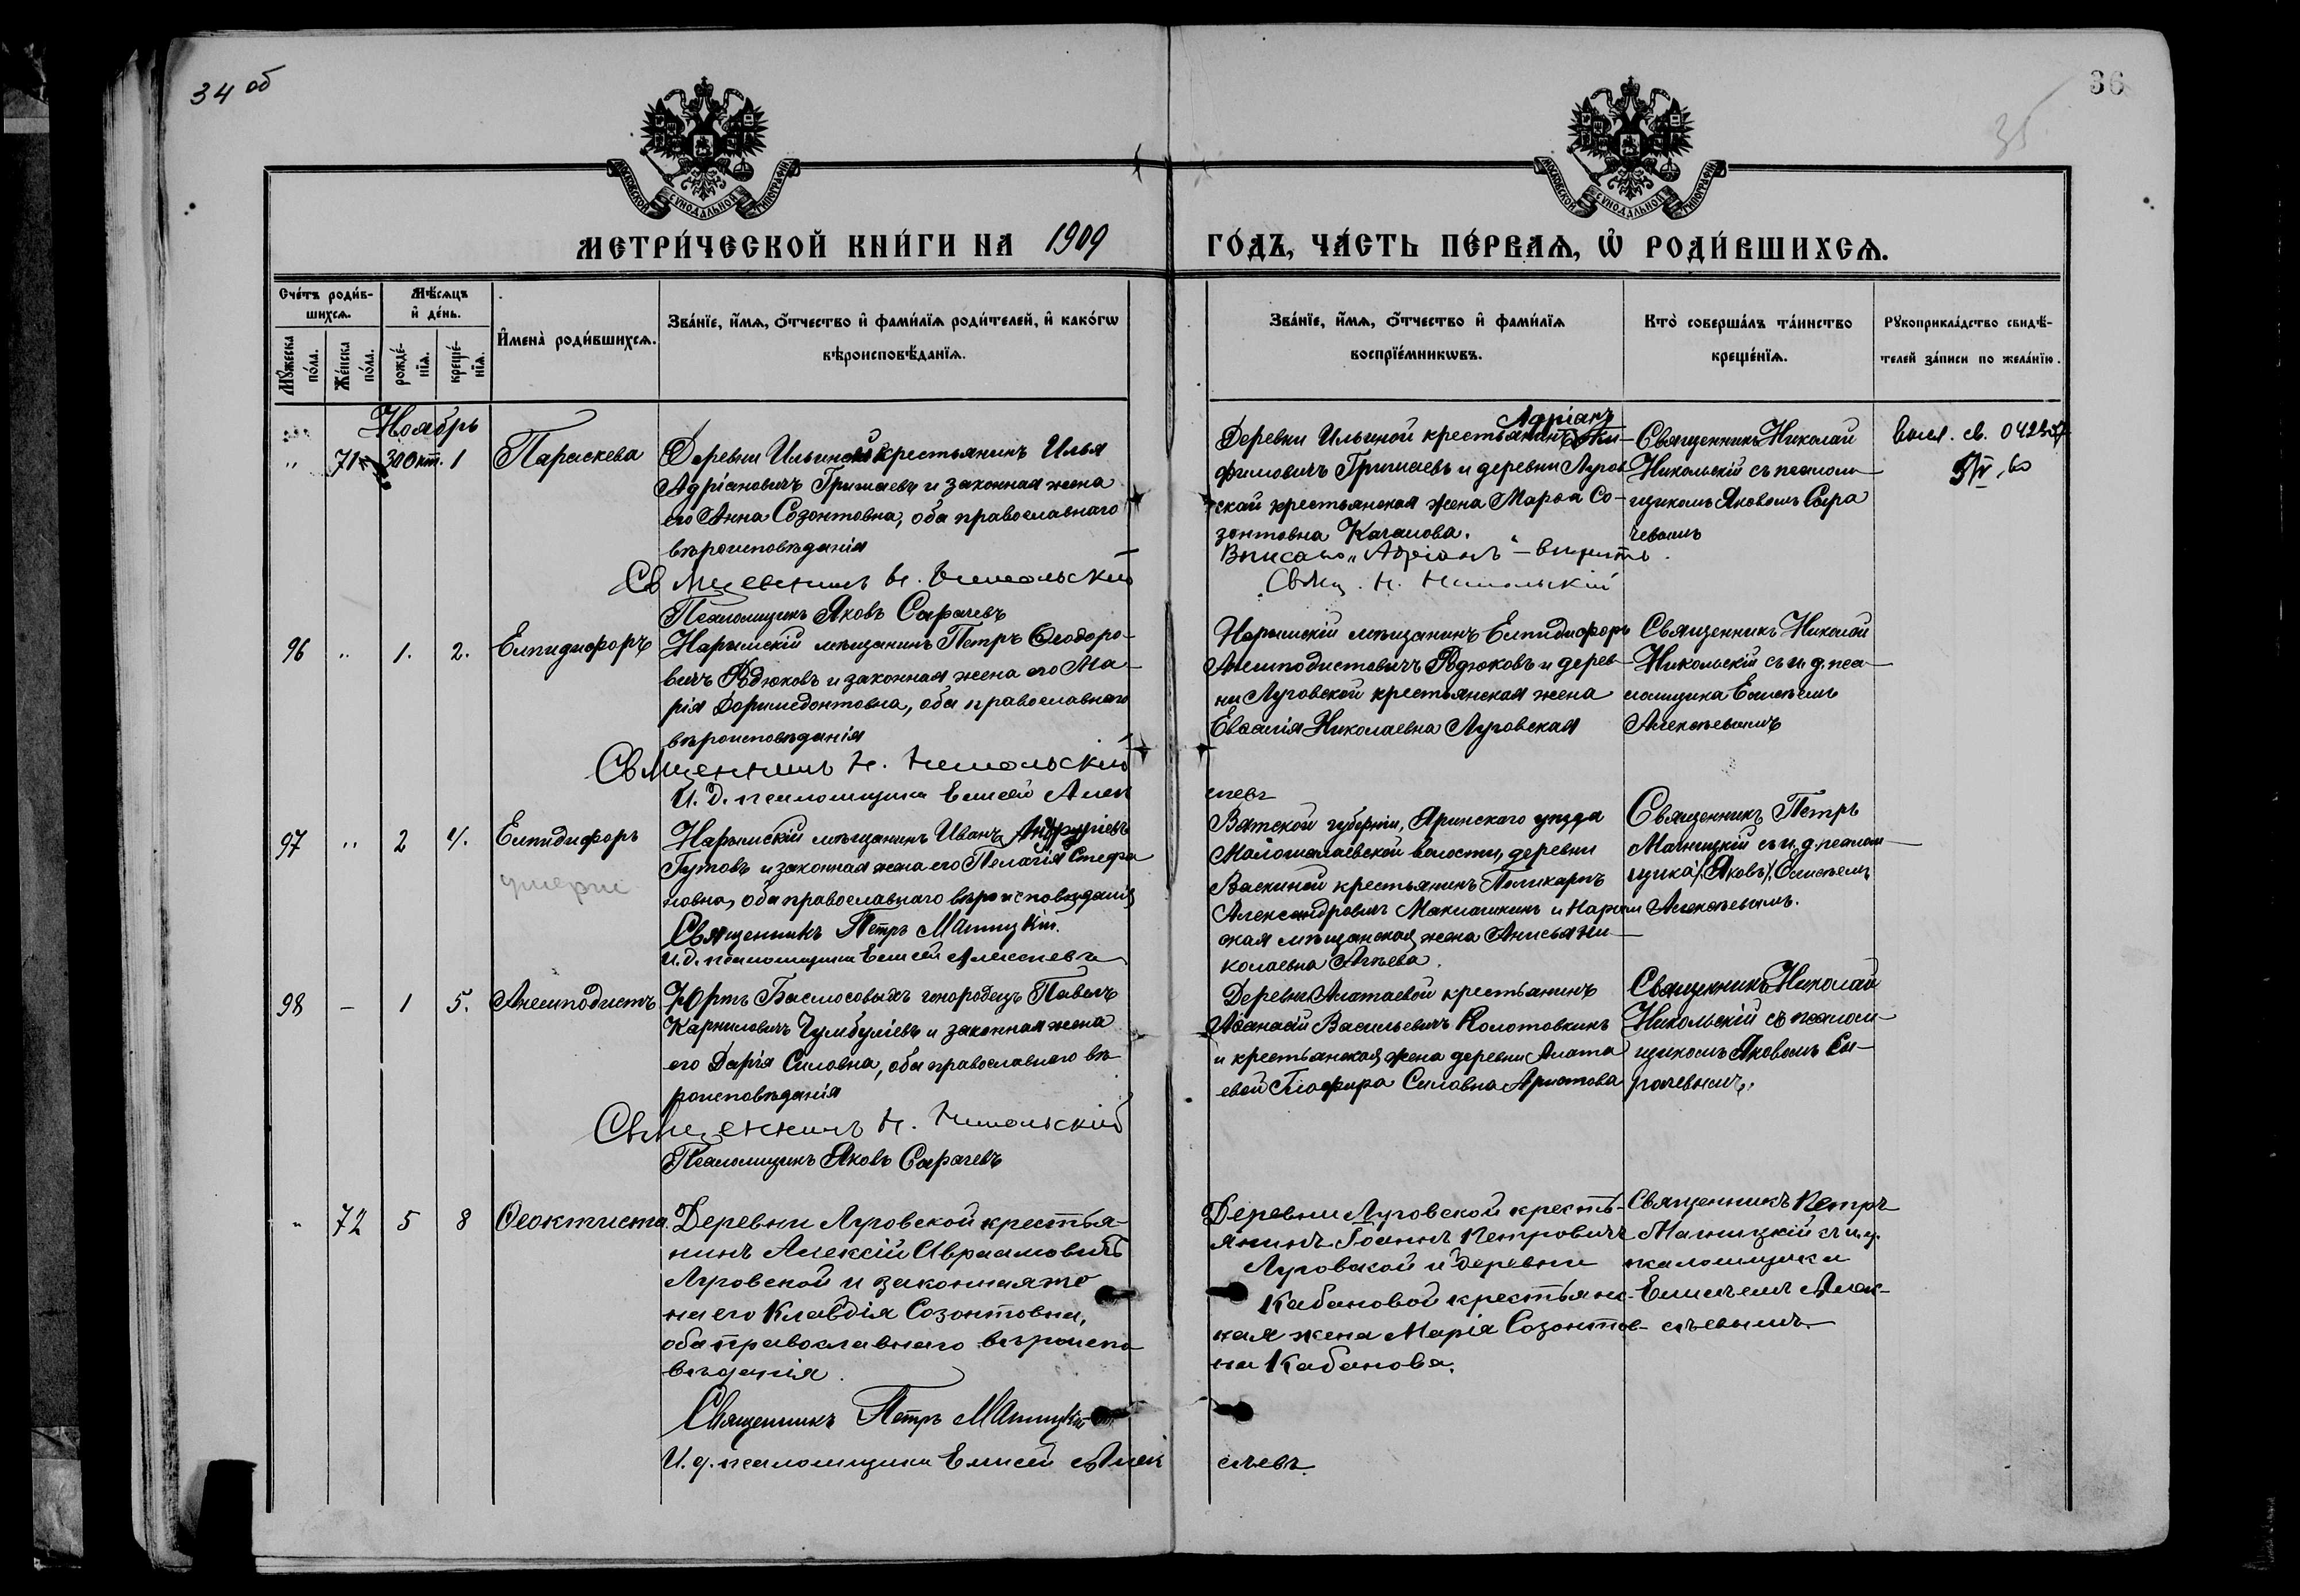 34 об
36
35
МОСКОВСКОЙ СѴНОДАЛЬНОЙ ТИПОГРАФІИ
МОСКОВСКОЙ СѴНОДАЛЬНОЙ ТИПОГРАФІИ
МЕТРИ́ЧЕСКОЙ КНИ́ГИ НА 1909 ГО́ДЪ, ЧА́СТЬ ПЕ́РВАѦ, Ѽ РОДИ́ВШИХСѦ.
Сче́тъ роди́в-
шихсѧ.
Мꙋ́жеска
по́ла.
Же́нска
по́ла.
Мѣ́сѧцъ
и҆ де́нь.
рожде́-
нїѧ.
креще́-
нїѧ.
И҆мена̀ роди́вшихсѧ.
Зва́нїе, и҆́мѧ, ѻ҆́тчество и҆ фами́лїѧ роди́телей, и҆ како́гѡ
вѣроисповѣ́данїѧ.
Зва́нїе, и҆́мѧ, ѻ҆́тчество и҆ фами́лїѧ
воспрїе́мникѡвъ.
Кто̀ соверша́лъ та́инство
креще́нїѧ.
Рꙋкоприкла́дство свидѣ́-
телей за́писи по жела́нїю.
Ноябрь
" 71 30 окт. 1 Параскева
Деревни Ильиной крестьянинъ Илья
Адріановичъ Гришаевъ и законная жена
его Анна Созонтовна, оба православнаго
вѣроисповѣданія
Священникъ Н. Никольскій
Псаломщикъ Яковъ Сарачевъ
Адріанъ
Деревни Ильиной крестьянинъ
фимовичъ Гришаевъ и деревни Лугов
ской крестьянская жена Марѳа Со-
зонтовна Качалова.
Вписано „Адріанъ" – вѣрить.
Свящ. Н. Никольскій
Священникъ Николай
Никольскій съ псалом-
щикомъ Яковомъ Сара
чевымъ
выд. св.
96 " 1. 2. Елпидифоръ
Нарымскій мѣщанинъ Петръ Ѳеодоро-
вичъ Родюковъ и законная жена его Ма-
рія Доримедонтовна, оба православнаго
вѣроисповѣданія
Священникъ Н. Никольскій
И. д. псаломщика Елисей Алек
сѣевъ
Нарымскій мѣщанинъ Елпидифоръ
Анемподистовичъ Родюковъ и дерев-
ни Луговской крестьянская жена
Евѳалія Николаевна Луговская
Священникъ Николай
Никольскій съ и. д. пса-
ломщика Елисѣемъ
Алексѣевымъ
97 " 2 4. Елпидифоръ
умеръ
Нарымскій мѣщанинъ Иванъ
Гутовъ и законная жена его Пелагія Стефа
новна, оба православнаго вѣроисповѣданія
Священникъ Петръ Мапицкій.
И. д. псаломщика Елисей Алексѣевъ
Вятской губерніи, Яринскаго уѣзда
волости, деревни
Васкиной крестьянинъ Поликарпъ
Александровичъ Маклашкинъ и Нарым
ская мѣщанская жена Анисья Ни-
колаевна Агѣева.
Священникъ Петръ
Мапицкій съ и. д. псалом-
щика /Яковъ/ Елисѣемъ
Алексѣевымъ.
98 — 1 5. Анемподистъ
Юртъ Басмосовыхъ инородецъ Павелъ
Карниловичъ Чумбуліевъ и законная жена
его Дарія Силовна, оба православнаго вѣ-
роисповѣданія
Священникъ Н. Никольскій
Псаломщикъ Яковъ Сарачевъ
Деревни Алатаевой крестьянинъ
Аѳанасій Васильевичъ Колотовкинъ
и крестьянская жена деревни Алата
евой Глафира Силовна Арматова
Священникъ Николай
Никольскій съ псалом-
щикомъ Яковомъ Са-
рачевымъ.
" 72 5 8 Ѳеоктиста
Деревни Луговской крестья-
нинъ Алексій Авраамовичъ
Луговской и законная же
на его Клавдія Созонтовна,
оба православнаго вѣроиспо
вѣданія.
Священникъ Петръ Мапицкій
И. д. псаломщика Елисей Алек
сѣевъ.
Деревни Луговской кресть-
янинъ Іоаннъ Петровичъ
Луговской и деревни
Кабановой крестьянс-
кая жена Марія Созонтов-
на Кабанова.
Священникъ Петръ
Мапицкій съ и. д.
псаломщика
Елисѣемъ Алек-
сѣевымъ.